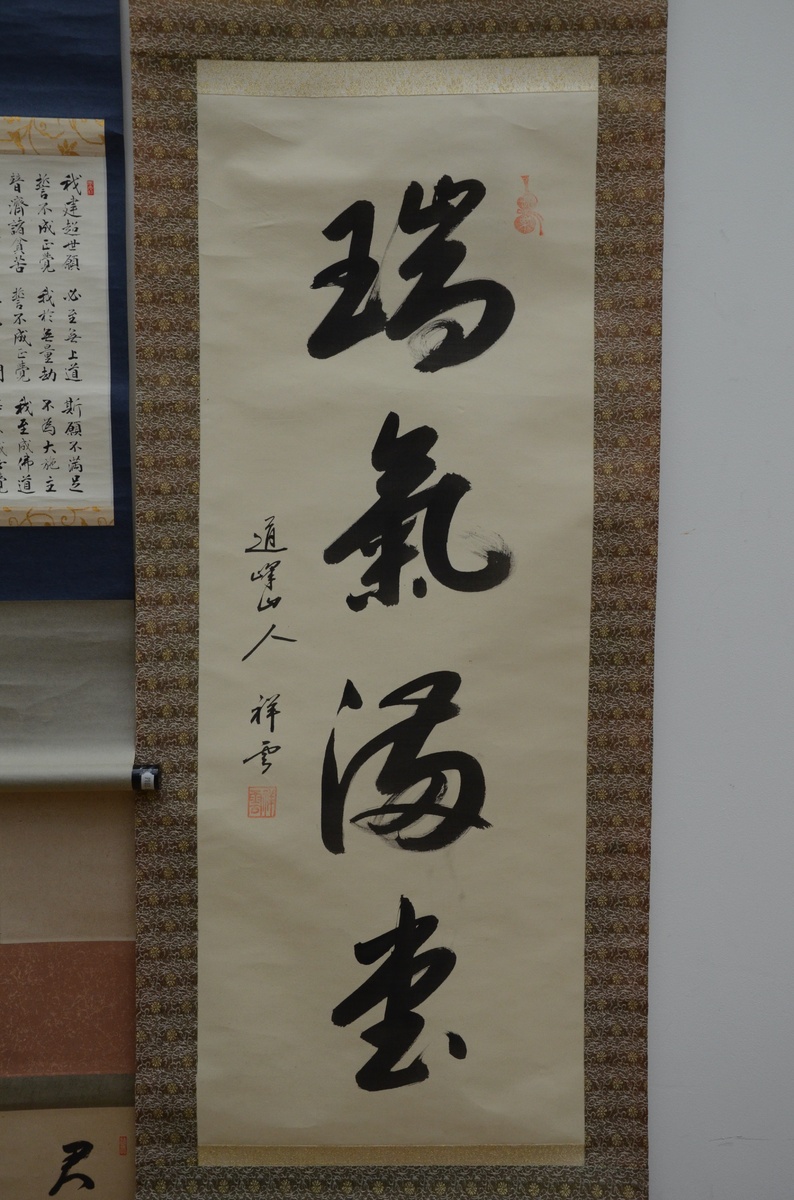 瑞氣満堂
道峰山人 祥雲
我建超世願 必至無上道 斯願不満足
誓不成正覺 我於無量劫 不為大施主
普濟諸貧苦 誓不成正覺 我至成佛道